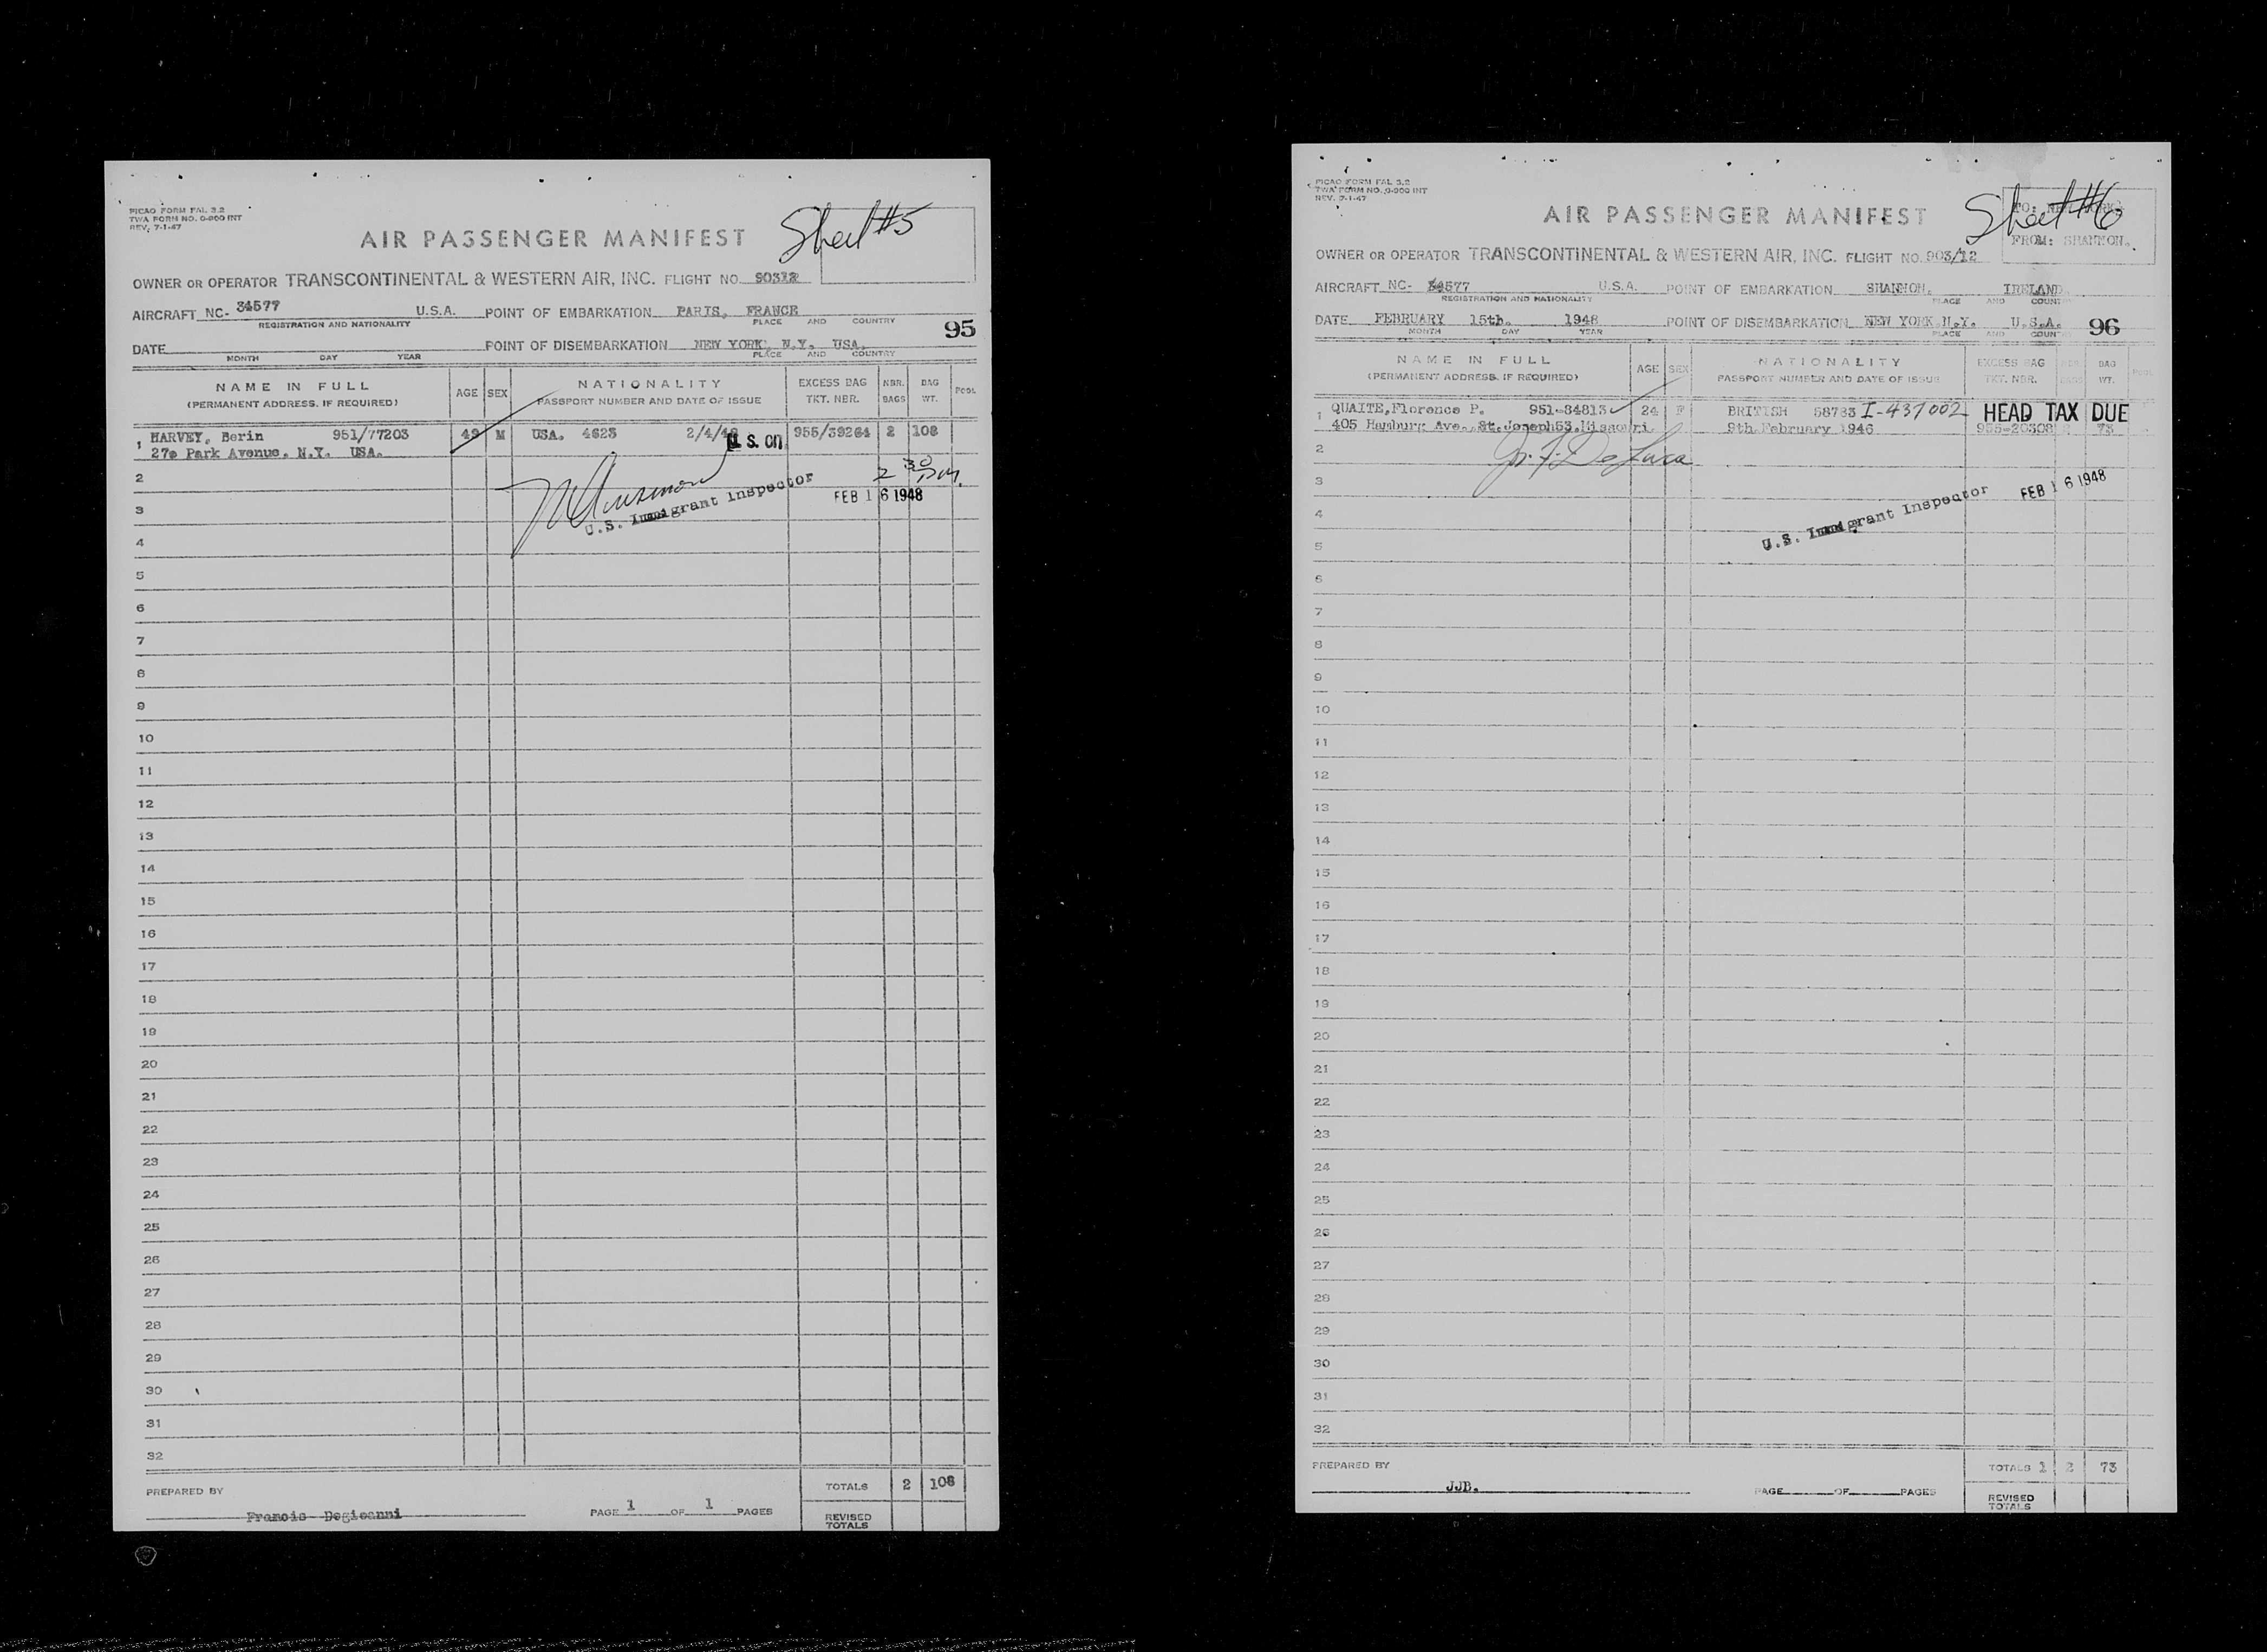 PICAO FORM FAL 3.2
TWA FORM NO. 0-900 INT
REV. 7-1-47
Sheet #5
AIR PASSENGER MANIFEST
OWNER OR OPERATOR TRANSCONTINENTAL & WESTERN AIR, INC. FLIGHT NO. 90312
AIRCRAFT NC- 34577 U.S.A. POINT OF EMBARKATION PARIS, FRANCE
REGISTRATION AND NATIONALITY PLACE AND COUNTRY
95
DATE POINT OF DISEMBARKATION NEW YORK, N.Y. USA.
MONTH DAY YEAR PLACE AND COUNTRY
NAME IN FULL AGE SEX NATIONALITY EXCESS BAG NBR. BAG POOL
(PERMANENT ADDRESS, IF REQUIRED) PASSPORT NUMBER AND DATE OF ISSUE TKT. NBR. BAGS WT.
1 HARVEY, Berin 951/77203 49 M USA. 4623 2/4/48 955/39264 2 108
27e Park Avenue. N.Y. USA.
2 2 30 PM.
U.S. Immigrant Inspector
3 FEB 16 1948
4
5
6
7
8
9
10
11
12
13
14
15
16
17
18
19
20
21
22
23
24
25
26
27
28
29
30
31
32
PREPARED BY TOTALS 2 108
Francis Degioanni PAGE 1 OF 1 PAGES REVISED TOTALS
PICAO FORM FAL 3.2
TWA FORM NO. 0-900 INT
REV. 7-1-47
Sheet #6
TO: NEW YORK.
AIR PASSENGER MANIFEST
FROM: SHANNON.
OWNER OR OPERATOR TRANSCONTINENTAL & WESTERN AIR, INC. FLIGHT NO. 903/12
AIRCRAFT NC- 34577 U.S.A. POINT OF EMBARKATION SHANNON. IRELAND.
REGISTRATION AND NATIONALITY PLACE AND COUNT
DATE FEBRUARY 15th. 1948 POINT OF DISEMBARKATION NEW YORK.N.Y. U.S.A. 96
MONTH DAY YEAR PLACE AND COUNT
NAME IN FULL AGE SEX NATIONALITY EXCESS BAG NBR. BAG POOL
(PERMANENT ADDRESS, IF REQUIRED) PASSPORT NUMBER AND DATE OF ISSUE TKT. NBR. BAGS WT.
1 QUAITE,Florence P. 951-34813 24 F BRITISH 58733 I-437002 HEAD TAX DUE
405 Hamburg Ave. St.Joseph53.Missouri. 9th.February 1946 955-20308 2 73
2 Jr. F. De Luca
3 FEB 16 1948
4 U.S. Immigrant Inspector
5
6
7
8
9
10
11
12
13
14
15
16
17
18
19
20
21
22
23
24
25
26
27
28
29
30
31
32
PREPARED BY TOTALS 1 2 73
JJB. PAGE OF PAGES REVISED TOTALS